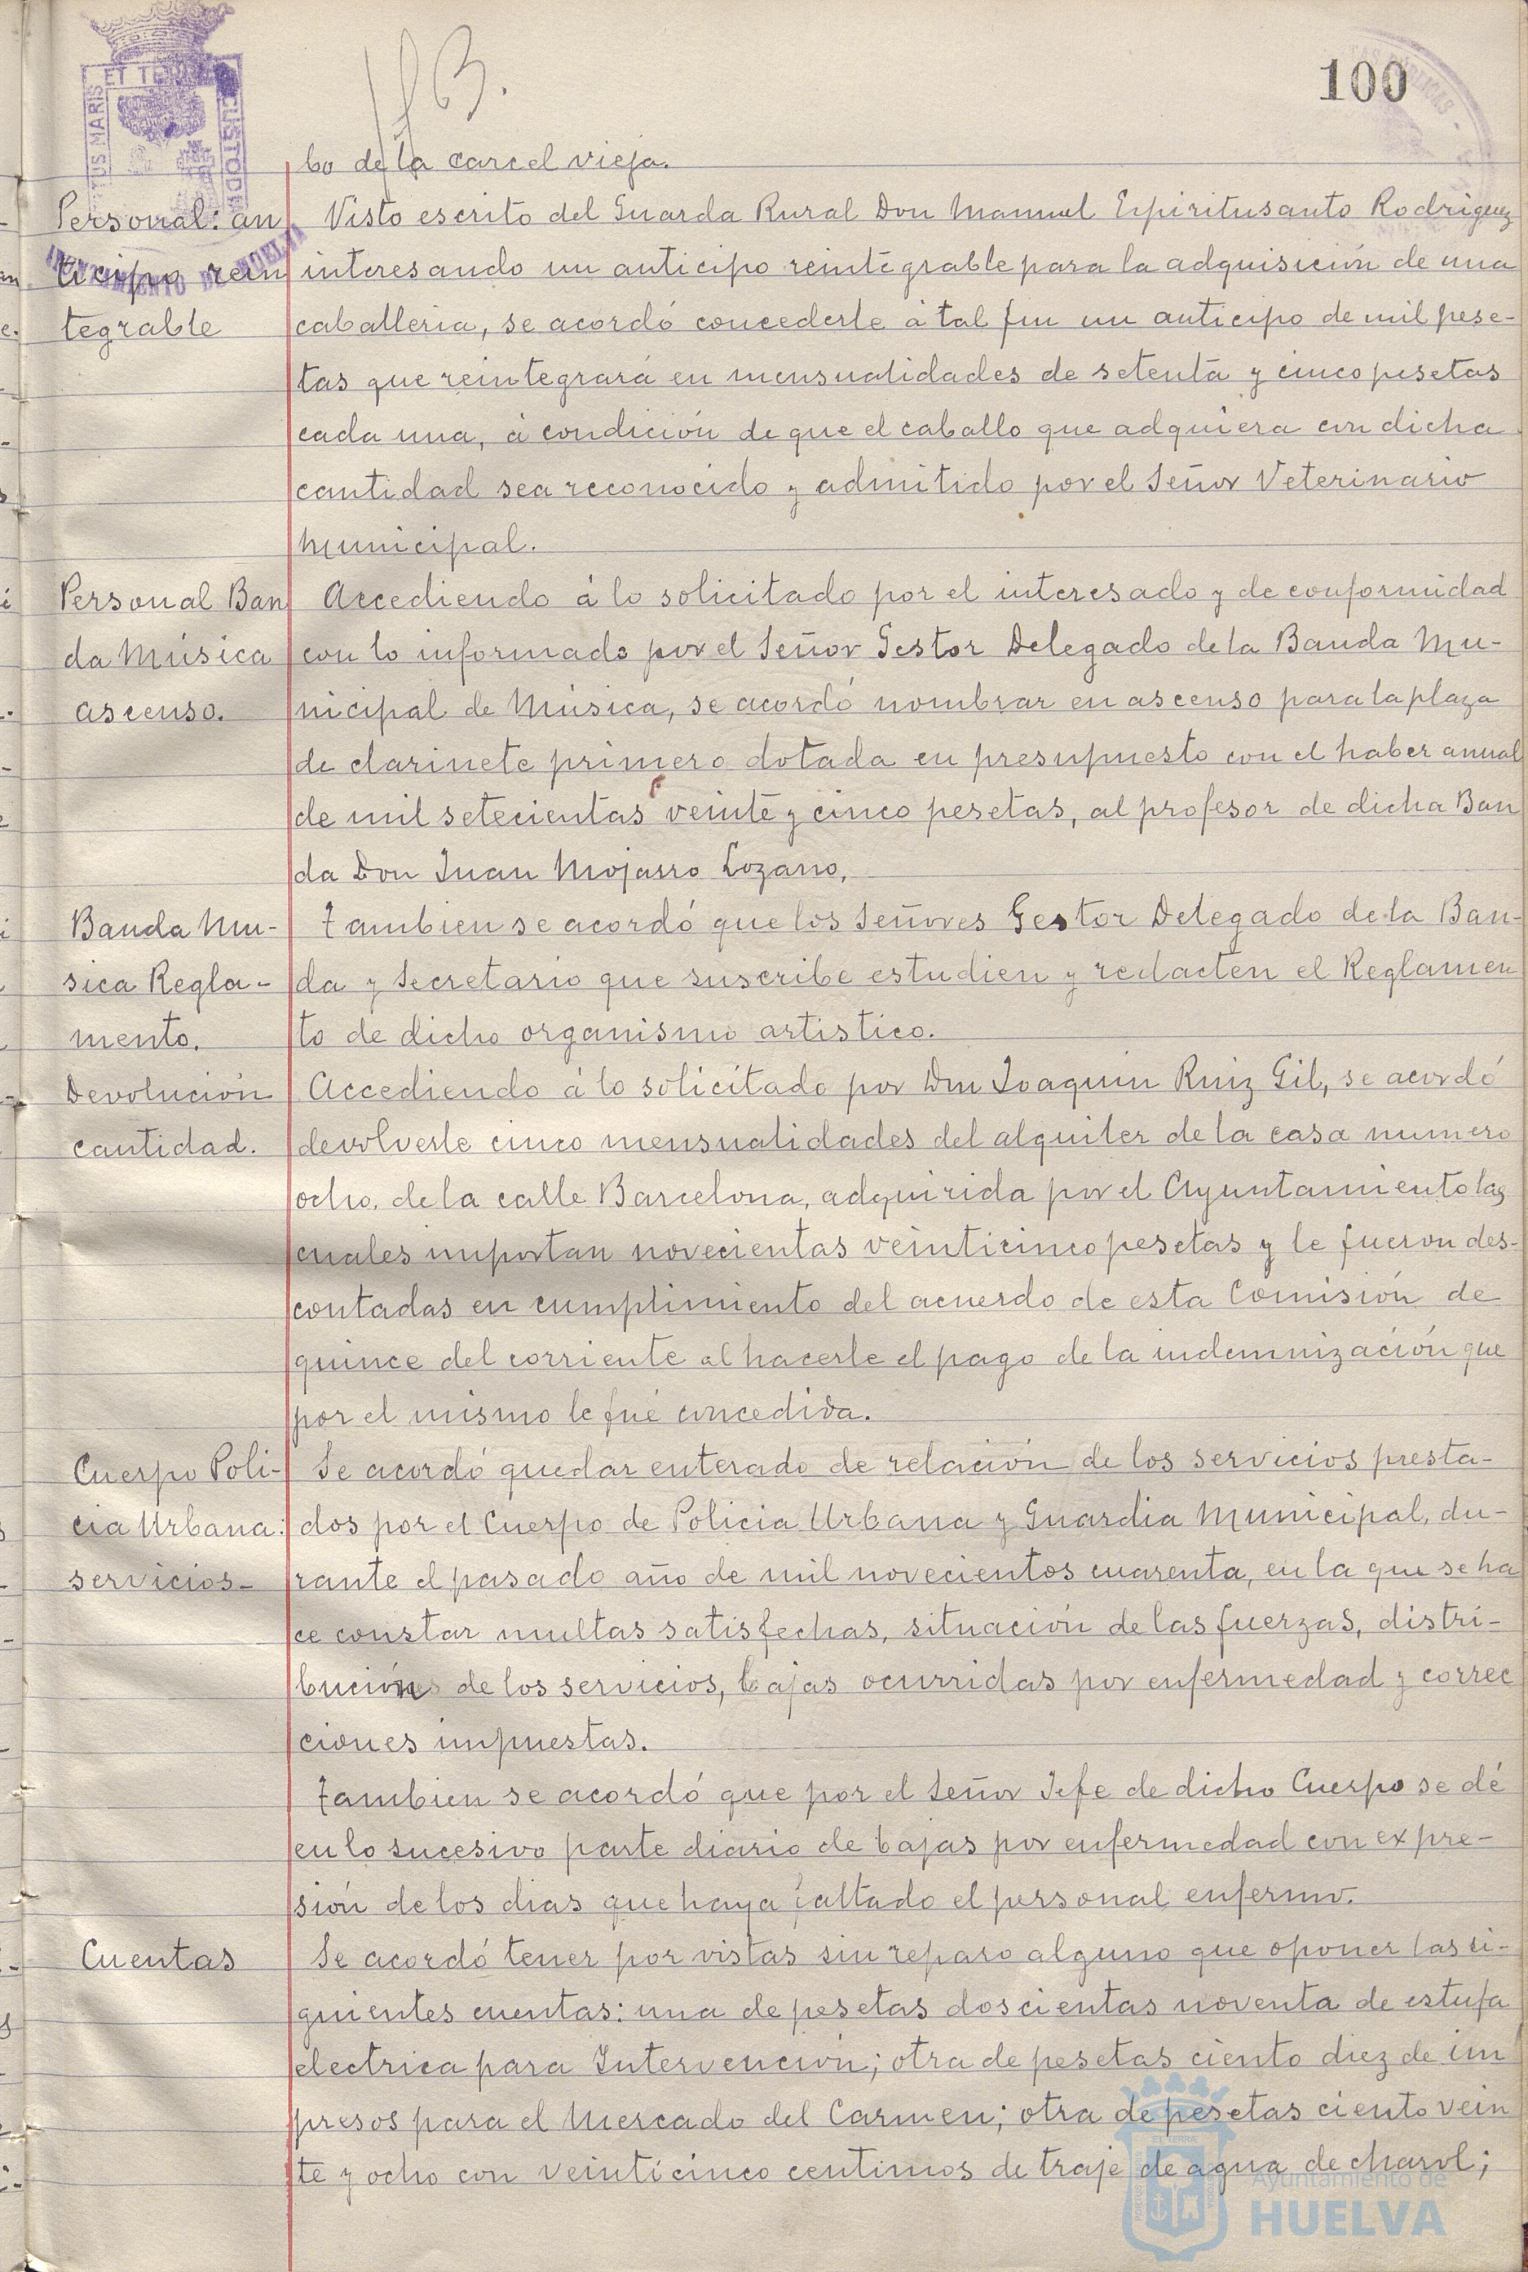 100
bo de la carcel vieja.
Personal: an
ticipo rein
tegrable
Visto escrito del Guarda Rural Don Manuel Espiritusanto Rodriguez
interesando un anticipo reintegrable para la adquisición de una
caballeria, se acordó concederle á tal fin un anticipo de mil pese-
tas que reintegrará en mensualidades de setenta y cinco pesetas
cada una, á condición de que el caballo que adquiera con dicha
cantidad sea reconocido y admitido por el Señor Veterinario
Municipal.
Personal Ban
da Música
ascenso.
Accediendo á lo solicitado por el interesado y de conformidad
con lo informado por el Señor Gestor Delegado de la Banda Mu-
nicipal de Música, se acordó nombrar en ascenso para la plaza
de clarinete primero dotada en presupuesto con el haber anual
de mil setecientas veinte y cinco pesetas, al profesor de dicha Ban
da Don Juan Mojarro Lozano,
Banda Mu-
sica Regla-
mento.
Tambien se acordó que los Señores Gestor Delegado de la Ban-
da y Secretario que suscribe estudien y redacten el Reglamen
to de dicho organismo artistico.
Devolución
cantidad.
Accediendo á lo solicitado por Don Joaquin Ruiz Gil, se acordó
devolverle cinco mensualidades del alquiler de la casa numero
ocho, de la calle Barcelona, adquirida por el Ayuntamiento las
cuales importan novecientas veinticinco pesetas y le fueron des-
contadas en cumplimiento del acuerdo de esta Comisión de
quince del corriente al hacerle el pago de la indemnización que
por el mismo le fué concedida.
Cuerpo Poli-
cia Urbana:
servicios-
Se acordó quedar enterado de relación de los servicios presta-
dos por el Cuerpo de Policia Urbana y Guardia Municipal, du-
rante el pasado año de mil novecientos cuarenta, en la que se ha
ce constar multas satisfechas, situación de las fuerzas, distri-
buciones de los servicios, bajas ocurridas por enfermedad y correc
ciones impuestas.
Tambien se acordó que por el Señor Jefe de dicho Cuerpo se dé
en lo sucesivo parte diario de bajas por enfermedad con expre-
sión de los dias que haya faltado el personal enfermo.
Cuentas
Se acordó tener por vistas sin reparo alguno que oponer las si-
guientes cuentas: una de pesetas doscientas noventa de estufa
electrica para Intervención; otra de pesetas ciento diez de im
presos para el Mercado del Carmen; otra de pesetas ciento vein
te y ocho con veinticinco centimos de traje de agua de charol;
Ayuntamiento de
HUELVA